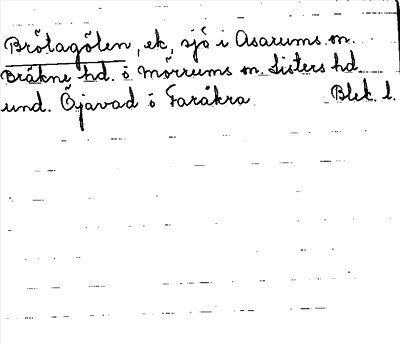 Brötagölen, ek, sjö i Asarums sn.
Bräkne hd. ö Mörrums sn. Listers hd
und. Öjavad ö Faråkra Blek. l.